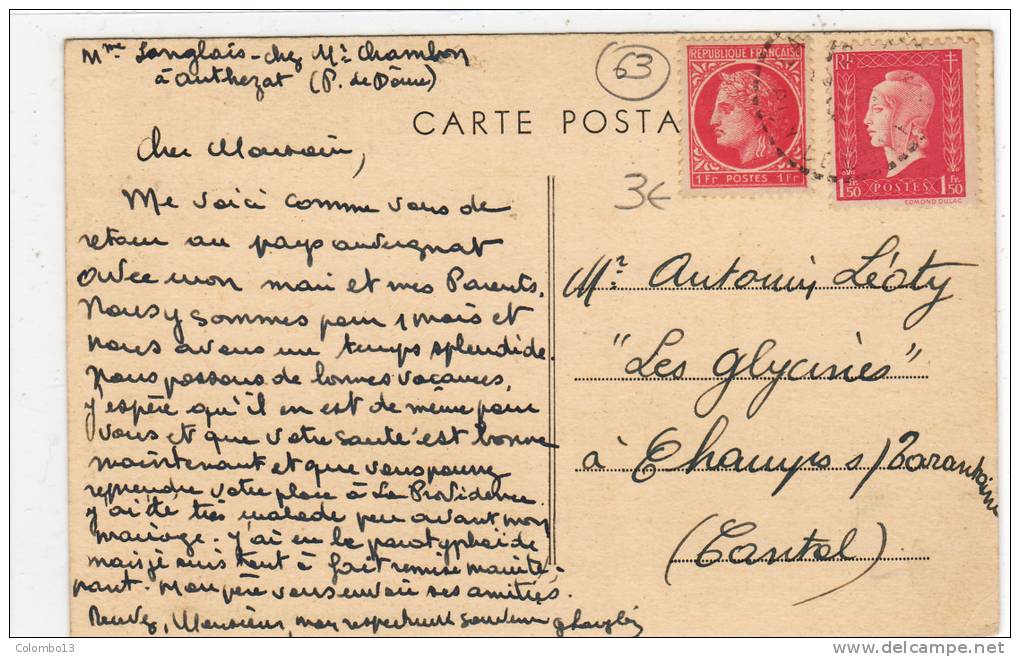 Mme Langlais - chez Mr Chambon
à Authezat (P. de Dôme)
63
CARTE POSTA
RÉPUBLIQUE FRANÇAISE
1 Fr POSTES 1 Fr
RF
1 Fr. 50 POSTES 1 Fr. 50
EDMOND DULAC
3€
Cher Monsieur,
Me voici comme vous de
retour au pays auvergnat
avec mon mari et mes Parents.
Nous y sommes pour 1 mois et
nous avons un temps splendide.
Nous passons de bonnes vacances,
j'espère qu'il en est de même pour
vous et que votre santé est bonne
maintenant et que vous pourrez
reprendre votre place à La Providence.
j'ai été très malade peu avant mon
mariage. j'ai eu la paratyphoïde
mais je suis tout à fait remise mainte-
nant. Mon père vous envoie ses amitiés.
Recevez, Monsieur, mon respectueux souvenir
Mr. Antonin Léoty
"Les Glycines"
à Champs s/Tarentaine
(Cantal)
Colombo13
delcampe.net